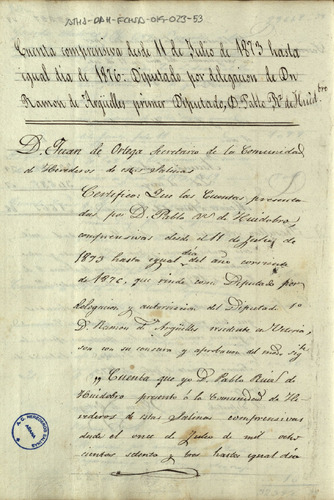 Cuenta comprensiva desde 11 de Julio de 1873 hasta
igual dia de 1876. Diputado por delegacion de Dn
Ramon de Argüelles primer Diputado, D. Pablo Rz. de Huidbro
D. Juan de Ortega Secretario de la Comunidad
de Herederos de Salinas
Certifico: Que las Cuentas presenta
das por D. Pablo Rz de Huidobro,
comprensivas desde el 11 de Julio de
1873 hasta igual dia del año corriente
de 1876, que rinde como Diputado por
delegacion y autorizacion del Diputado 1º
D. Ramon de Argüelles residente en
son con su censura y aprobacion del modo sigte
"Cuenta que yo D. Pablo Ruiz de
Huidobro presento á la Comunidad de He
rederos de estas Salinas comprensivas
desde el once de Julio de mil ocho
cientos setenta y tres hasta igual dia